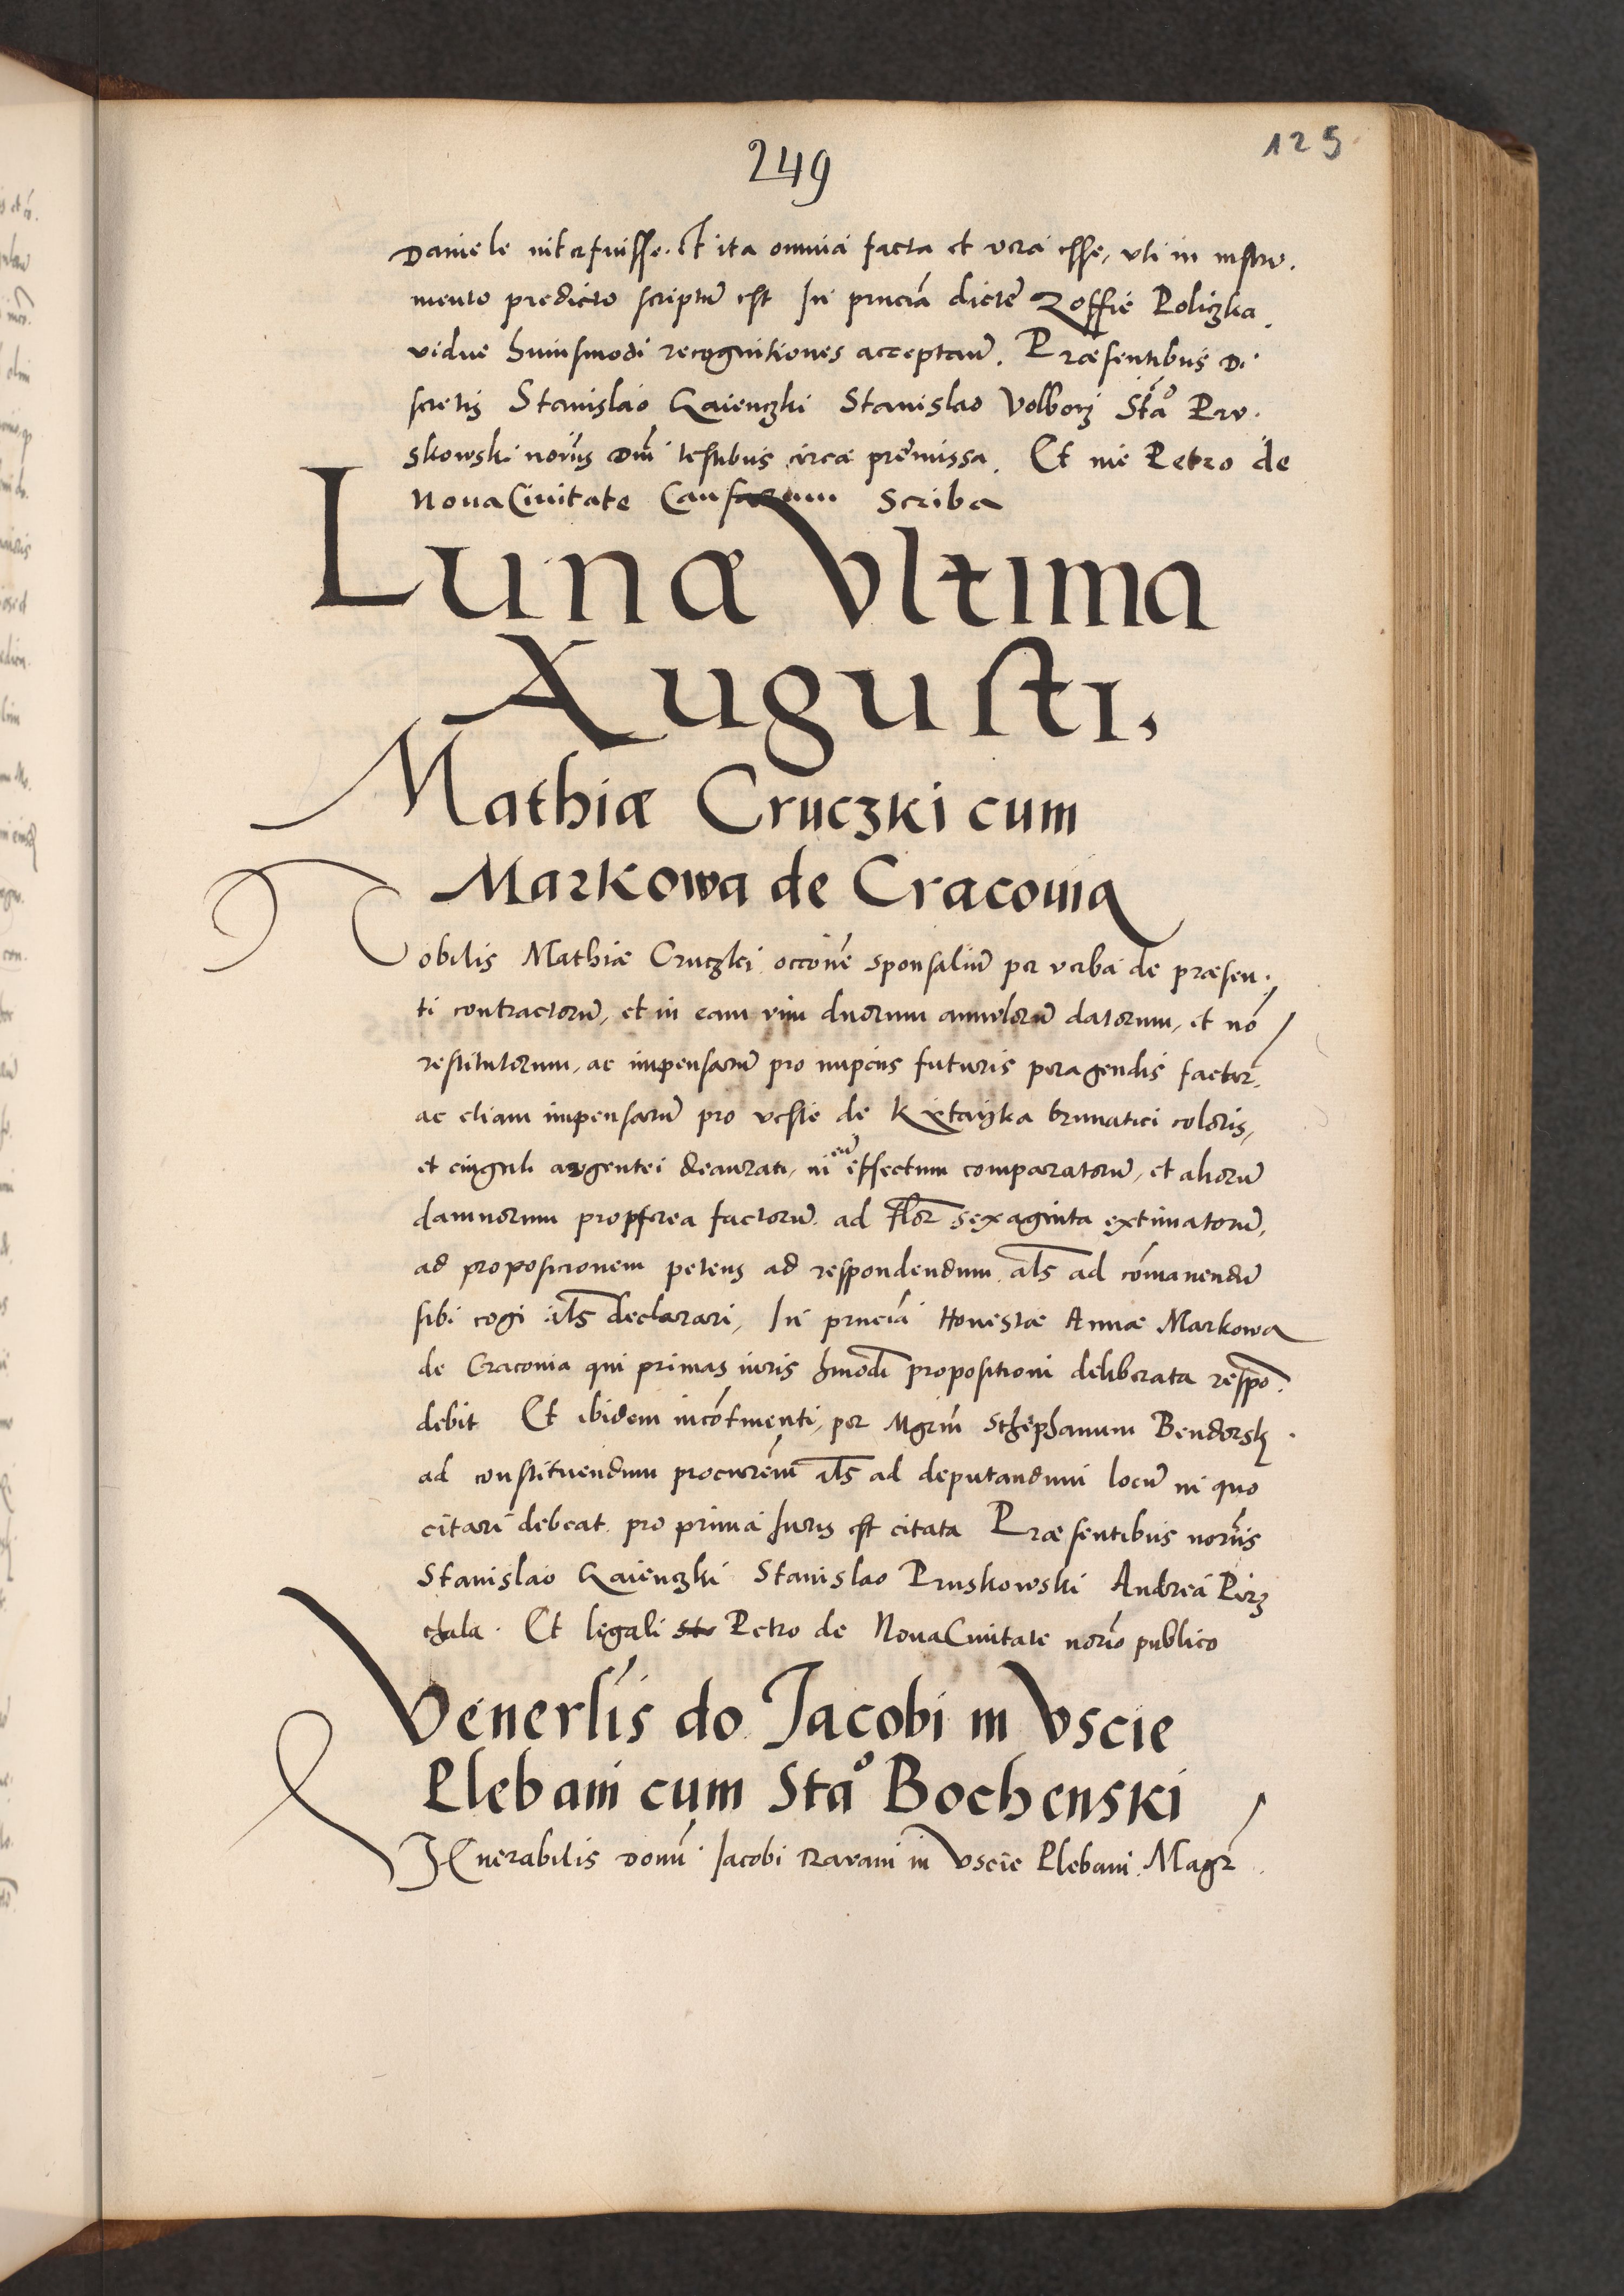 249
125
Daniele interfuisse. Et ita omnia facta et vera esse, vti in instru.
mento predicto scriptũ est In pñciã dictẽ Zoffie Policzka
vidue huiusmodi recognitiones acceptañ. Præsentibus Di
scretis Stanislao Gaienczki Stanislao Volborz Stã° Pru.
skowski noriis Dm̃ testibus circa premissa. Et me Petro de
Nova Ciuitate Causarum Scriba
Lunæ Vltima
Augusti,
Mathiæ Cruczki cum
Markowa de Cracouia
Nobilis Mathiæ Cruczki occõnẽ sponsaliũ per verba de præsen.
ti contractorũ, et in eam vim duorum annulorũ datorum, et nõ
restitutorum, ac impensarũ pro nupciis futuris peragendis factor.
ac etiam impensarũ pro veste de Kitaizka brunatici coloris,
et cinguli argentei deaurati, in eũ effectum comparatorũ, et aliorũ
damnorum propterea factorũ ad flor sexaginta extimatorũ,
ad proposicionem petens ad respondendum als ad cõmanendũ
sibi cogi als declarari, In pñciã Honestæ Annæ Markowa
de Cracouia qui primas iuris hmodi propositioni deliberata respõ.
debit Et ibidem incõtinenti, per Mgrm̃ Sthephanum Bendorsk
ad constituendum procurem̃ als ad deputandum locũ in quo
citari debeat pro prima Juris est citata Præsentibus noriis
Stanislao Gaienczki Stanislao Pruskowski Andrea Pirz
chala. Et legali Petro de Nova Ciuitate norio publico
Venerlis do Jacobi in Vscie
Plebani cum Stã° Bochenski
Venerabilis Domĩ Jacobi Ravani in Vscie Plebani Magr